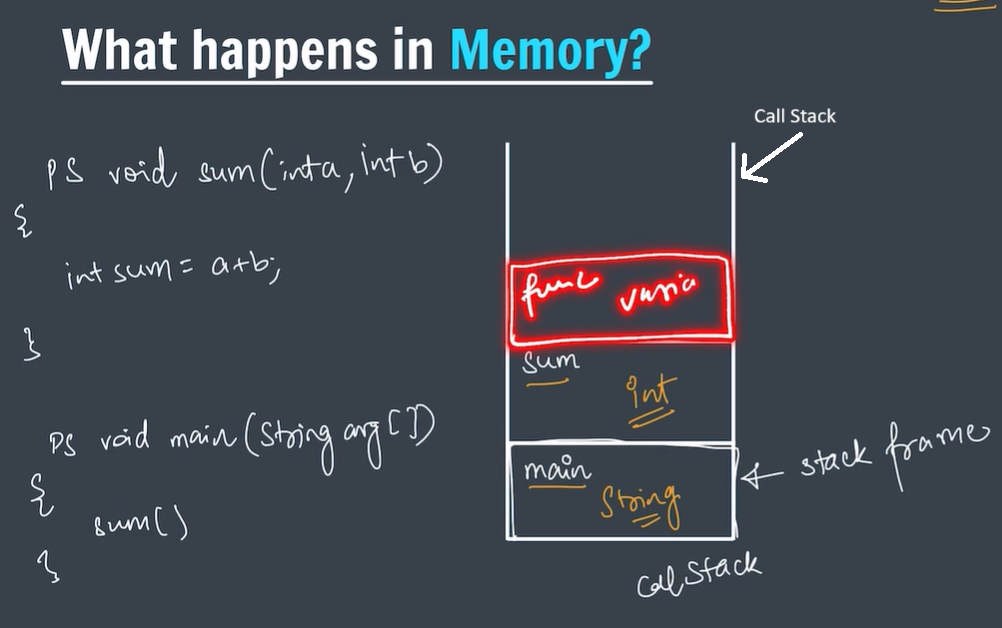 What happens in Memory?
Call Stack
PS void sum(int a, int b)
{
int sum = a+b;
}
PS void main(String arg[])
{
sum()
}
func varia
sum
int
main
String
stack frame
Call Stack